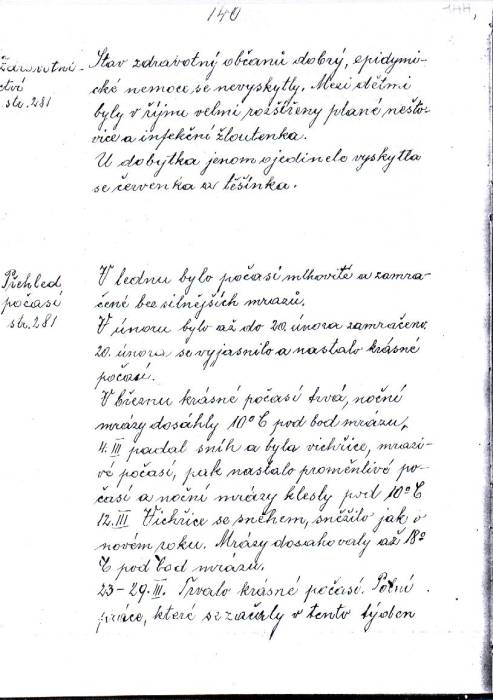 140
144,
Zdravotni-
ctví
str. 281
Stav zdravotný občanů dobrý, epidymi-
cké nemoce se nevyskytly. Mezi dětmi
byly v říjnu velmi rozšířeny plané nešto-
vice a infekční žloutenka.
U dobytka jenom ojedinele vyskytla
se červenka a těšínka.
Přehled
počasí
str. 281
V lednu bylo počasí mlhovité a zamra-
čené bez silnějších mrazů.
V únoru bylo až do 20. února zamračeno.
20. února se vyjasnilo a nastalo krásné
počasí.
V březnu krásné počasí trvá, noční
mrázy dosáhly 10° C pod bod mrázu,
4. III padal sníh a byla vichřice, mrazi-
vé počasí, pak nastalo proměnlivé po-
časí a noční mrázy klesly pod 10° C
12. III Vichřice se sněhem, sněžilo jak o
novém roku. Mrázy dosahovaly až 18°
C pod bod mrázu.
23-29. III. Trvalo krásné počasí. Polní
práce, které se začurly v tento týden